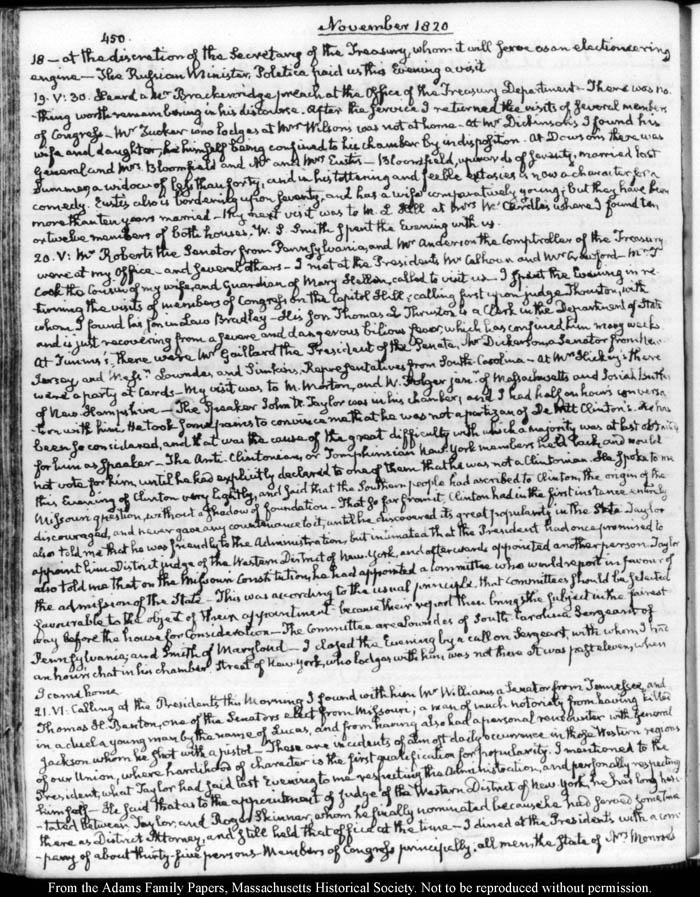 November 1820
450.
18 — at the discretion of the Secretary of the Treasury, whom it will serve as an electioneering
engine — The Russian Minister, Poletica paid us this Evening a visit
19. V: 30. Heard a Mr Brackenridge preach at the Office of the Treasury Department — There was no-
-thing worth remembering in his discourse. After the service I returned the visits of several members
of Congress — Mr Tucker who lodges at Mrs Wilsons was not at home — At Mr Dickinson's I found his
wife and daughter, he himself being confined to his chamber by indisposition. At Dowson's there was
General and Mrs Bloomfield and Mr and Mrs Eustis — Bloomfield, upwards of seventy, married last
Summer a widow of less than forty, and in his tottering and feeble extasies is now a character for a
comedy. Eustis also is bordering upon seventy, and has a wife comparatively young; but they have been
more than ten years married — My next visit was to M. L. Hill at Mrs where I found ten
or twelve members of both houses, W. S. Smith spent the Evening with us.
20. V: Mr Roberts the Senator from Pennsylvania, and Mr Anderson the Comptroller of the Treasury
were at my Office — and several others — I met at the Presidents Mr Calhoun and Mr Crawford — Mr T
Cook the Cousin of my wife, and Guardian of Mary Hellen, called to visit us — I spent the Evening in re-
turning the visits of members of Congress on the Capitol Hill; calling first upon Judge Thruston, with
whom I found his son in Law Bradley — His Son Thomas L Thruston is a Clerk in the Department of State
and is just recovering from a severe and dangerous bilious fever, which has confined him many weeks.
At Timms's, there were Mr Gaillard the President of the Senate, Mr Dickerson, a Senator from New-
Jersey and Messrs Lowndes, and Simkins, Representatives from South Carolina — At Mrs Hickey's there
were a party at Cards — My visit was to M. Morton, and W. Folger junr. of Massachusetts and Josiah Butler
of New Hampshire — The Speaker John W. Taylor was in his chamber, and I had half an hour's conversa-
tion with him. He took some pains to convince me that he was not a partizan of De Witt Clinton's. He has
been so considered, and that was the cause of the great difficulty with which a majority was at last obtained
for him as Speaker — The Anti-Clintonians, or Tompkinsian New-York members held back, and would
not vote for him, until he had explicitly declared to one of them that he was not a Clintonian. He spoke to me
this Evening of Clinton very lightly, and said that the Southern people had ascribed to Clinton, the origin of the
Missouri question, without a shadow of foundation — That so far from it, Clinton had in the first instance entirely
discouraged, and never gave any countenance to it, until he discovered its great popularity in the State. Taylor
also told me that he was friendly to the Administration, but intimated that the President had once promised to
appoint him District judge of the Western District of New-York, and afterwards appointed another person. Taylor
also told me that on the Missouri Constitution, he had appointed a Committee who would report in favour of
the admission of the State — This was according to the usual principle, that Committees should be selected
favourable to the object of their appointment — because their report then brings the subject in the fairest
way before the house for Consideration — The Committee are Lowndes of South Carolina Sergeant of
Pennsylvania; and Smith of Maryland — I closed the Evening by a call on Sergeant, with whom I had
an hour's chat in his chamber. Street of New York, who lodges with him was not there. It was past eleven, when
I came home.
21. VI. Calling at the Presidents this Morning I found with him Mr Williams a Senator from Tennessee, and
Thomas H. Benton, one of the Senators elect from Missouri; a man of much notoriety from having killed
in a duel a young man by the name of Lucas, and from having also had a personal rencounter with General
Jackson whom he shot with a pistol — These are incidents of almost daily occurrence in those Western regions
of our Union, where hardihood of character is the first qualification for popularity. I mentioned to the
President, what Taylor had said last Evening to me respecting the Administration, and personally respecting
himself — He said that as to the appointment of Judge of the Western District of New York, he has long hesi-
-tated between Taylor, and Roger Skinner, whom he finally nominated because he had served sometime
there as District Attorney, and still held that office at the time — I dined at the Presidents with a com-
-pany of about thirty-five persons — Members of Congress principally. all men, the State of Mrs Monroe's
From the Adams Family Papers, Massachusetts Historical Society. Not to be reproduced without permission.